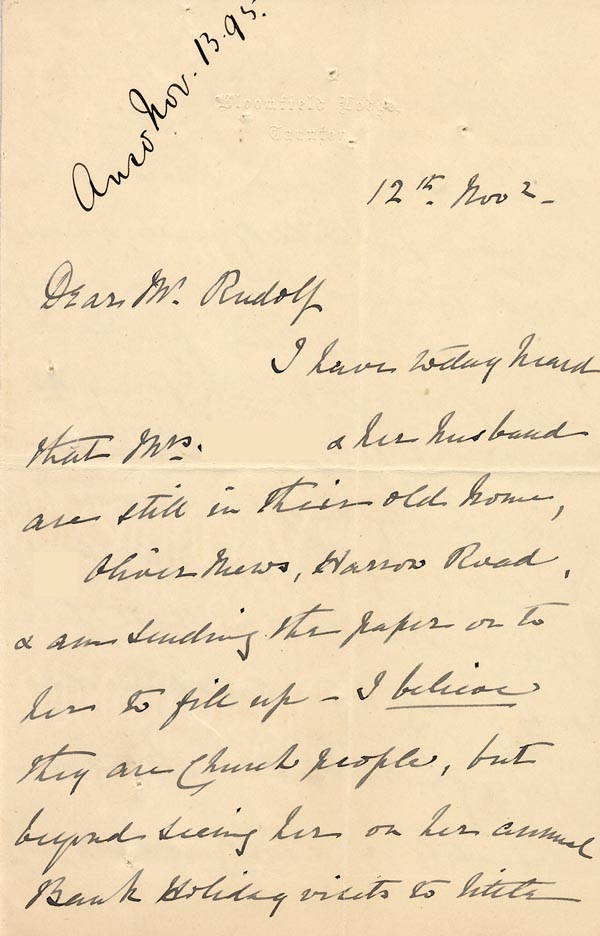 Ansd Nov. 13. 95.
Bloomfield Lodge,
Taunton.
12th. Novr -
Dear Mr. Rudolf
I have today heard
that Mrs. & her husband
are still in their old home,
Oliver Mews, Harrow Road,
& am sending the paper on to
her to fill up - I believe
they are Church people, but
beyond seeing her on her annual
Bank Holiday visits to little